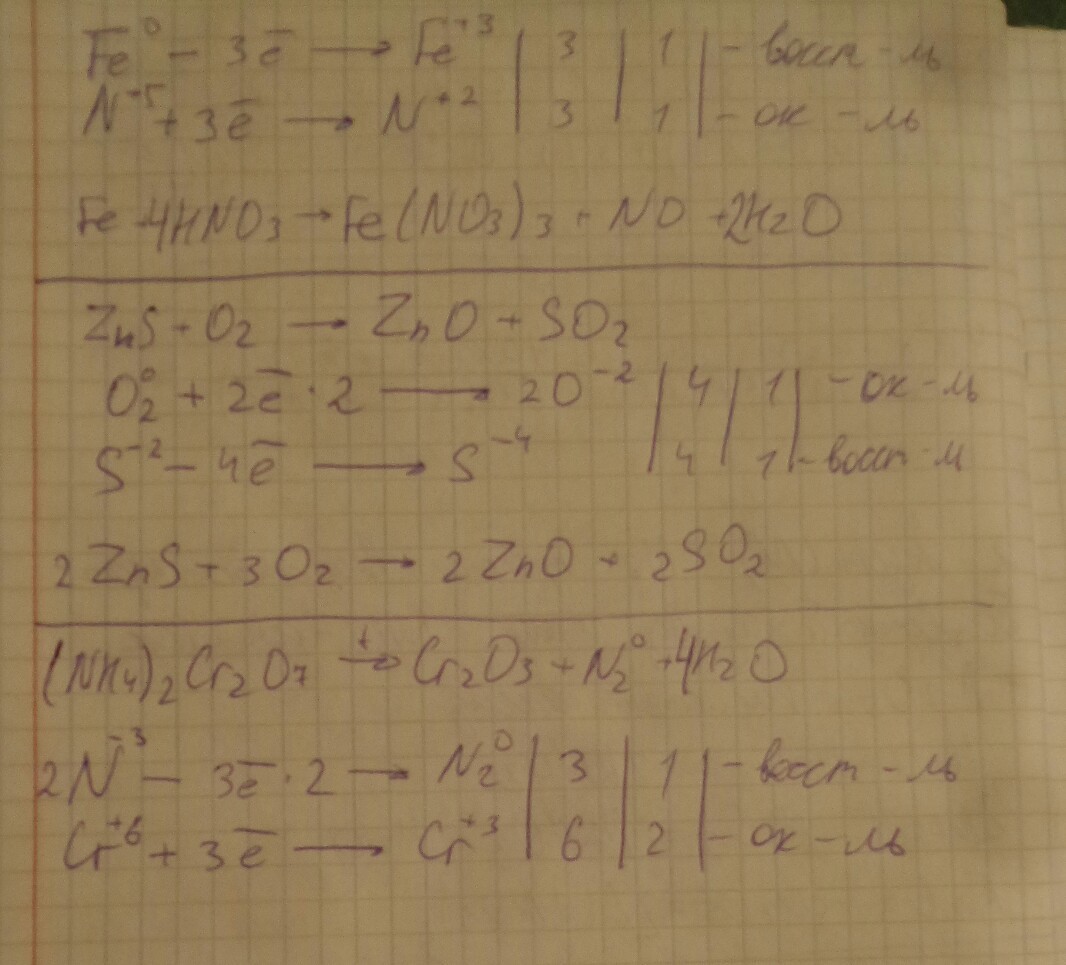 Fe⁰ - 3ē → Fe⁺³ | 3 | 1 | - восст-ль
N⁺⁵ + 3ē → N⁺² | 3 | 1 | - ок-ль
Fe 4HNO₃ → Fe(NO₃)₃ + NO + 2H₂O
ZnS + O₂ → ZnO + SO₂
O₂⁰ + 2ē · 2 → 2O⁻² | 4 | 1 | - ок-ль
S⁻² - 4ē → S⁻⁴ | 4 | 1 | - восст-л
2ZnS + 3O₂ → 2ZnO + 2SO₂
(NH₄)₂Cr₂O₇ →ᵗ Cr₂O₃ + N₂⁰ + 4H₂O
2N⁻³ - 3ē · 2 → N₂⁰ | 3 | 1 | - восст-ль
Cr⁺⁶ + 3ē → Cr⁺³ | 6 | 2 | - ок-ль